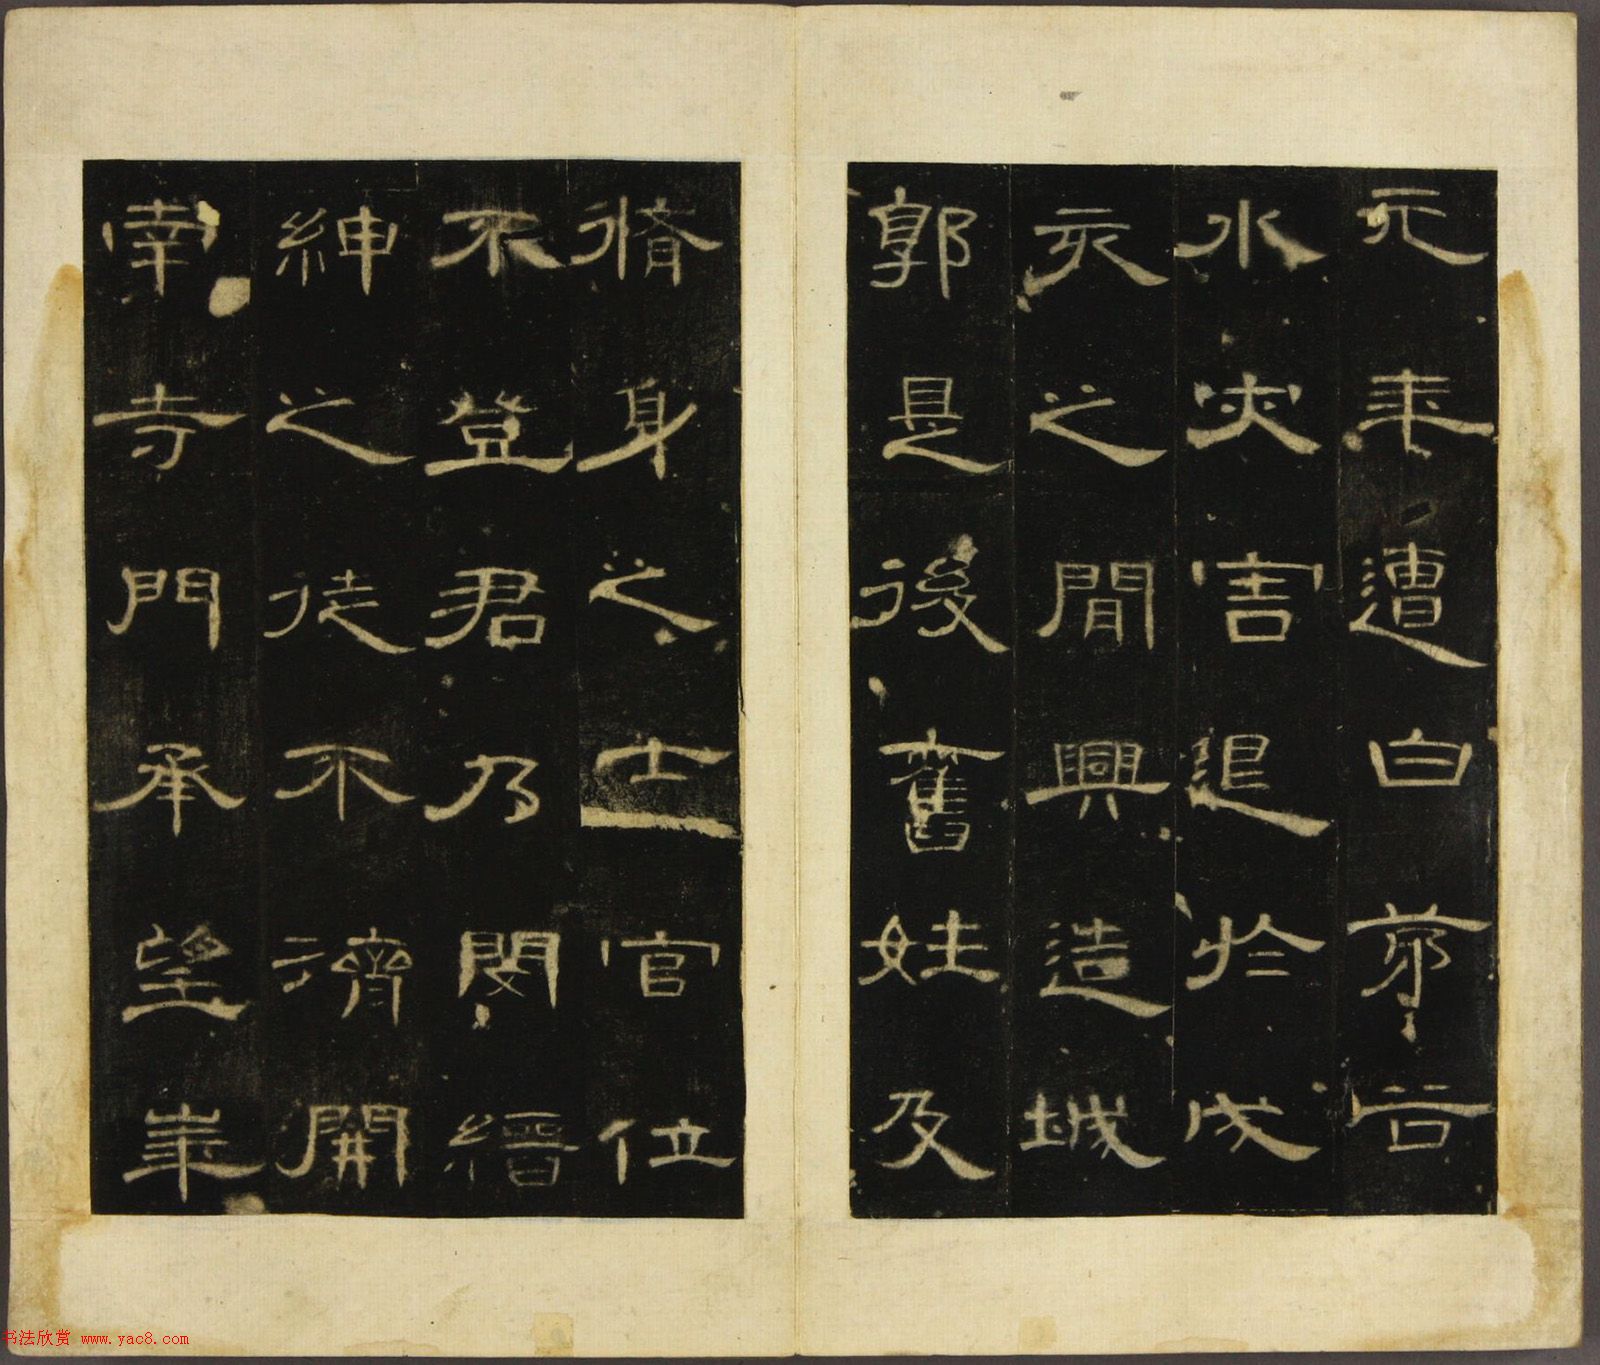 元年遭白茅谷
水灾害退於戌
亥之間興造城
郭是後舊姓及
脩身之士官位
不登君乃閔縉
紳之徒不濟開
南寺門承望華
书法欣赏 www.yac8.com